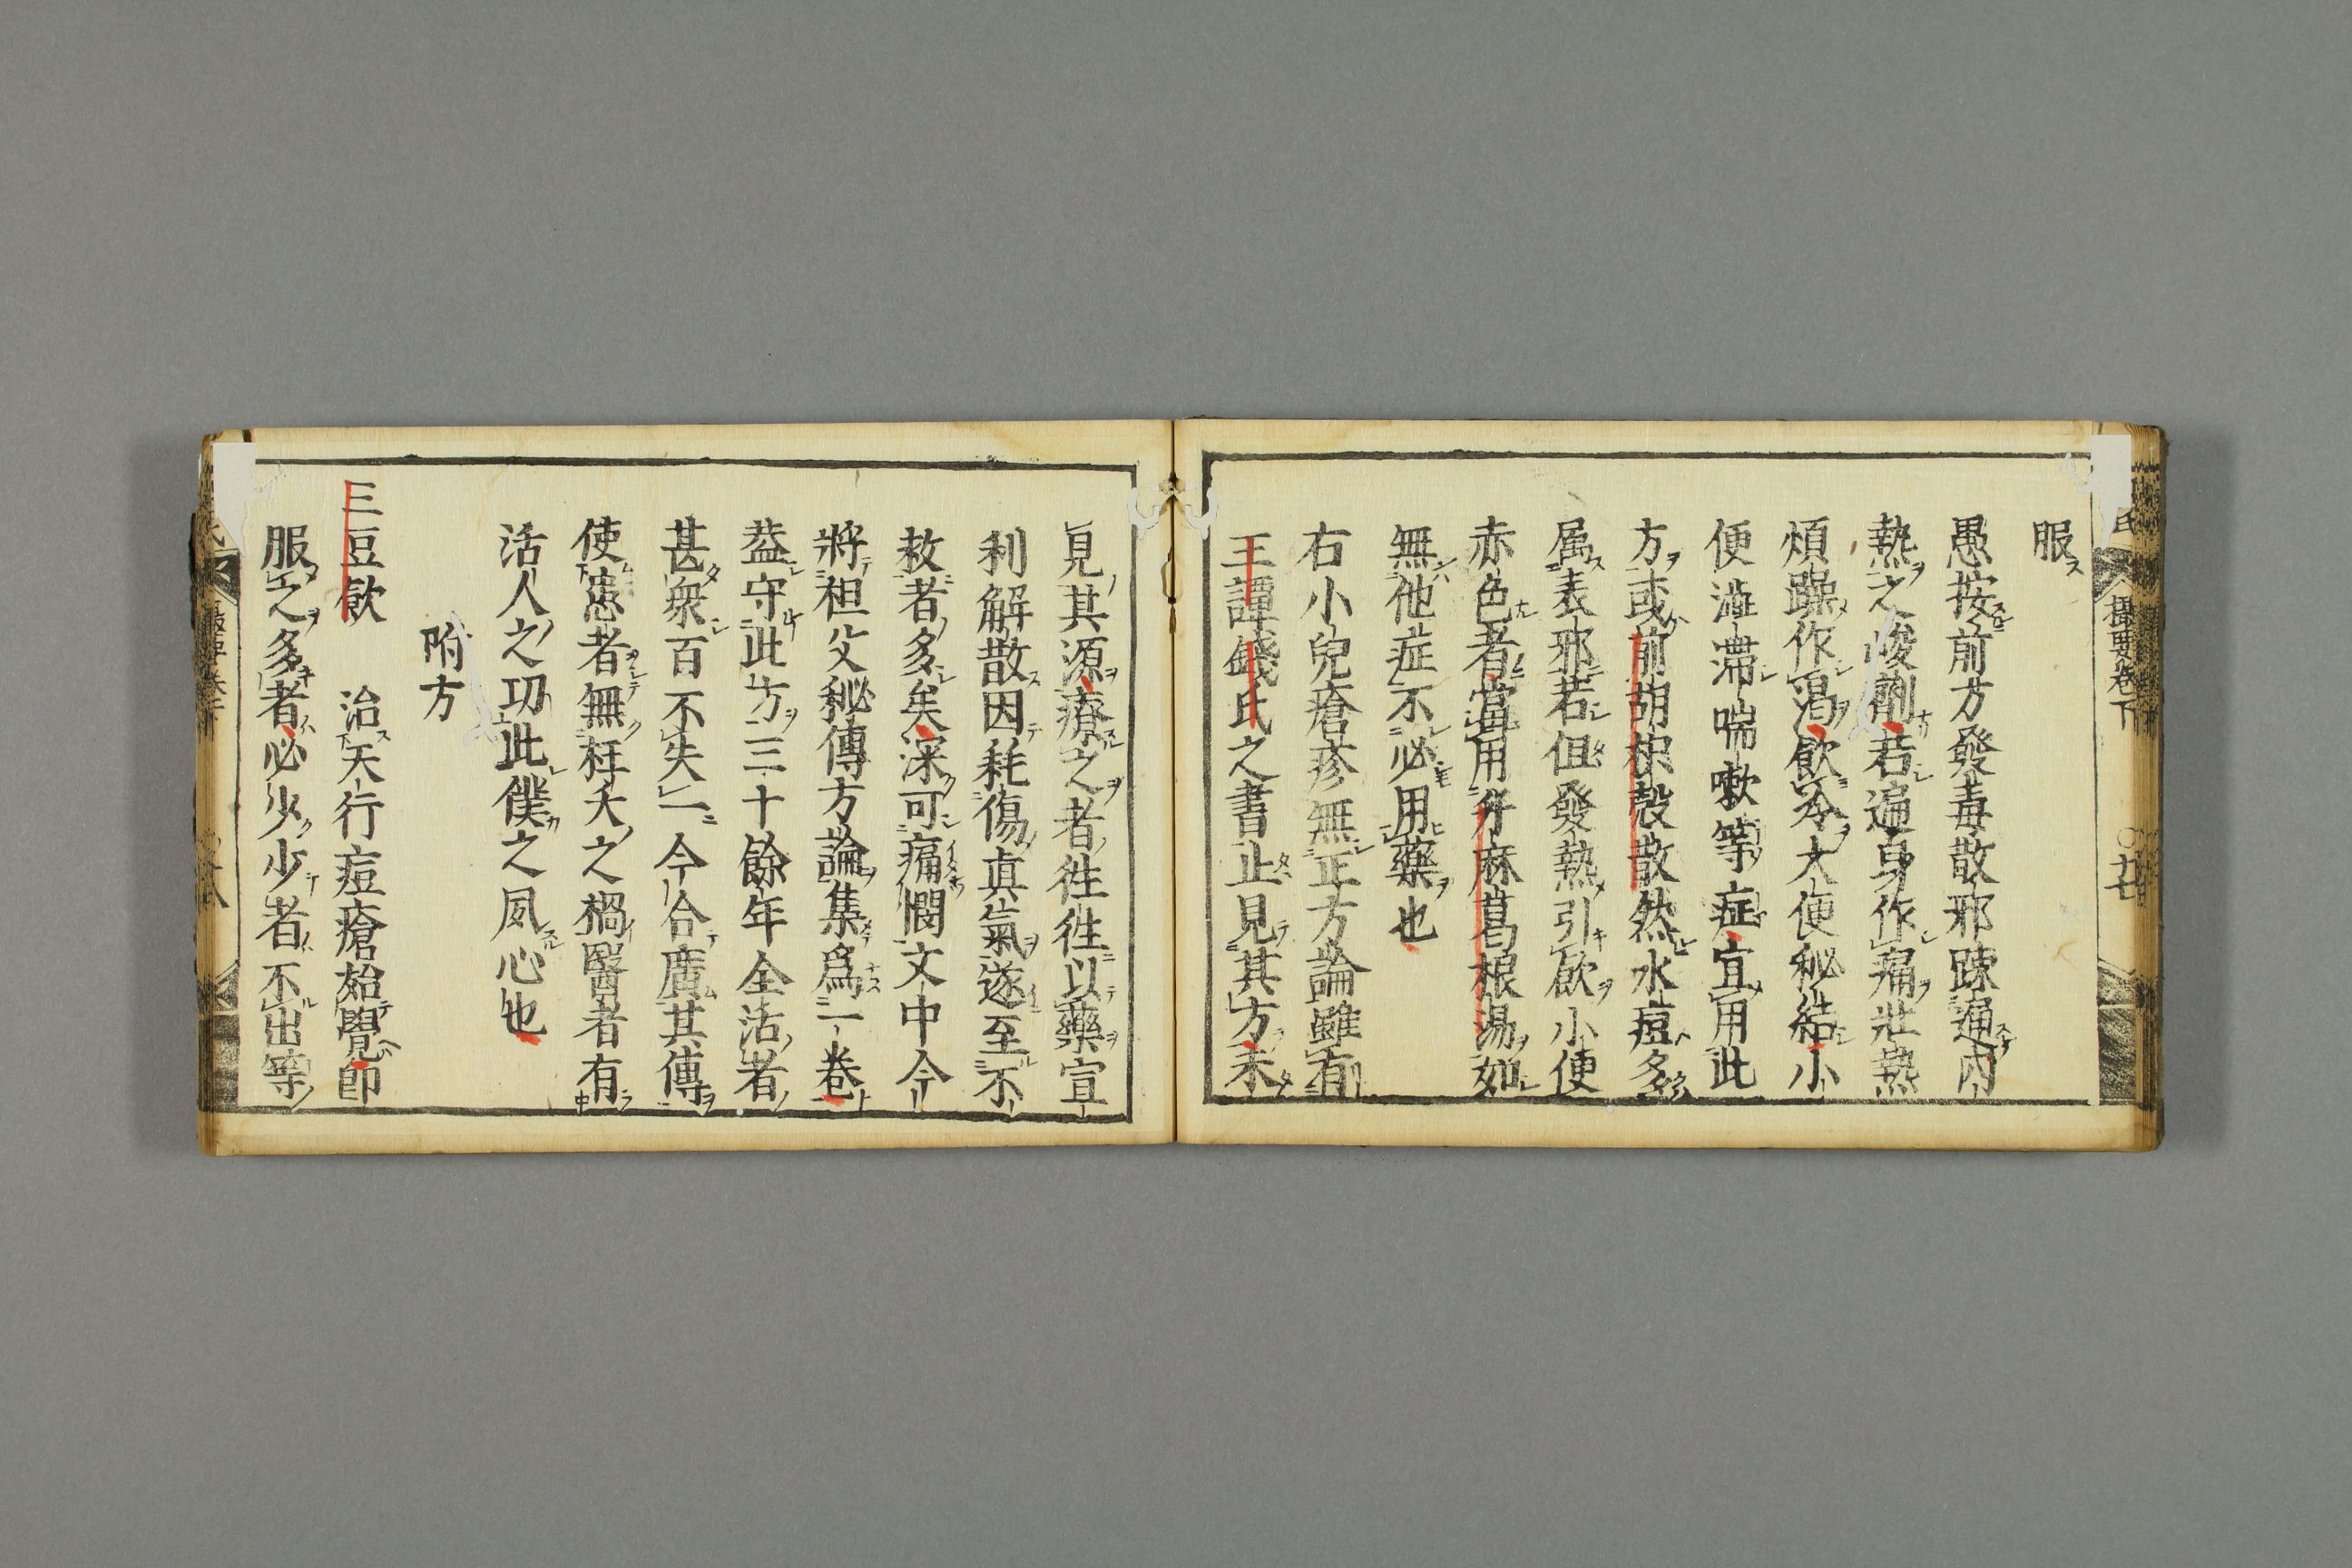 服
愚按前方發毒散邪踈通内
熱之峻劑若遍身作痛壯熱
煩躁作渴飲冷大便秘結小
便澁滯喘嗽等症宜用此
方或前胡枳殼散然水痘多
属表邪若但發熱引飮小便
赤色者當用升麻葛根湯如
無他症不必用藥也
右小兒瘡疹無正方論雖有
王譚錢氏之書止見其方未
見其源療之者徃徃以藥宣
利解散因耗傷真氣遂至不
救者多矣深可痛憫文中今
將祖父秘傳方論集爲一卷
葢守此方三十餘年全活者
甚衆百不失一今合廣其傳
使患者無枉夭之禍醫者有
活人之功此僕之夙心也
附方
三豆飮 治天行痘瘡始覺即
服之多者必少少者不出等